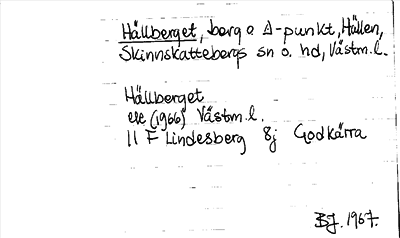 Hällberget, berg o △-punkt, Hällen,
Skinnskattebergs sn o. hd, Västm.l.
Hällberget
ek (1966) Västm.l.
11 F Lindesberg 8j Godkärra
BJ. 1967.